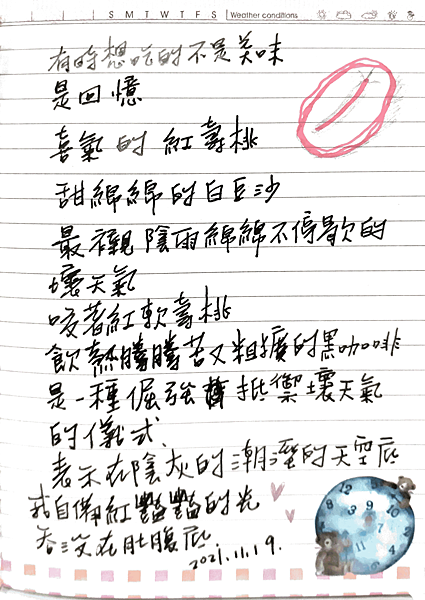 S M T W T F S Weather conditions
有時想吃的不是美味
是回憶
喜氣的紅壽桃
甜綿綿的白豆沙
最襯陰雨綿綿不停歇的
壞天氣
咬著紅軟壽桃
飲熱騰騰苦又粗獷的黑咖啡
是一種倔強抵禦壞天氣
的儀式、
表示在陰灰的潮溼的天空底
我自備紅豔豔的光
吞沒在肚腹底
2021.11.19.